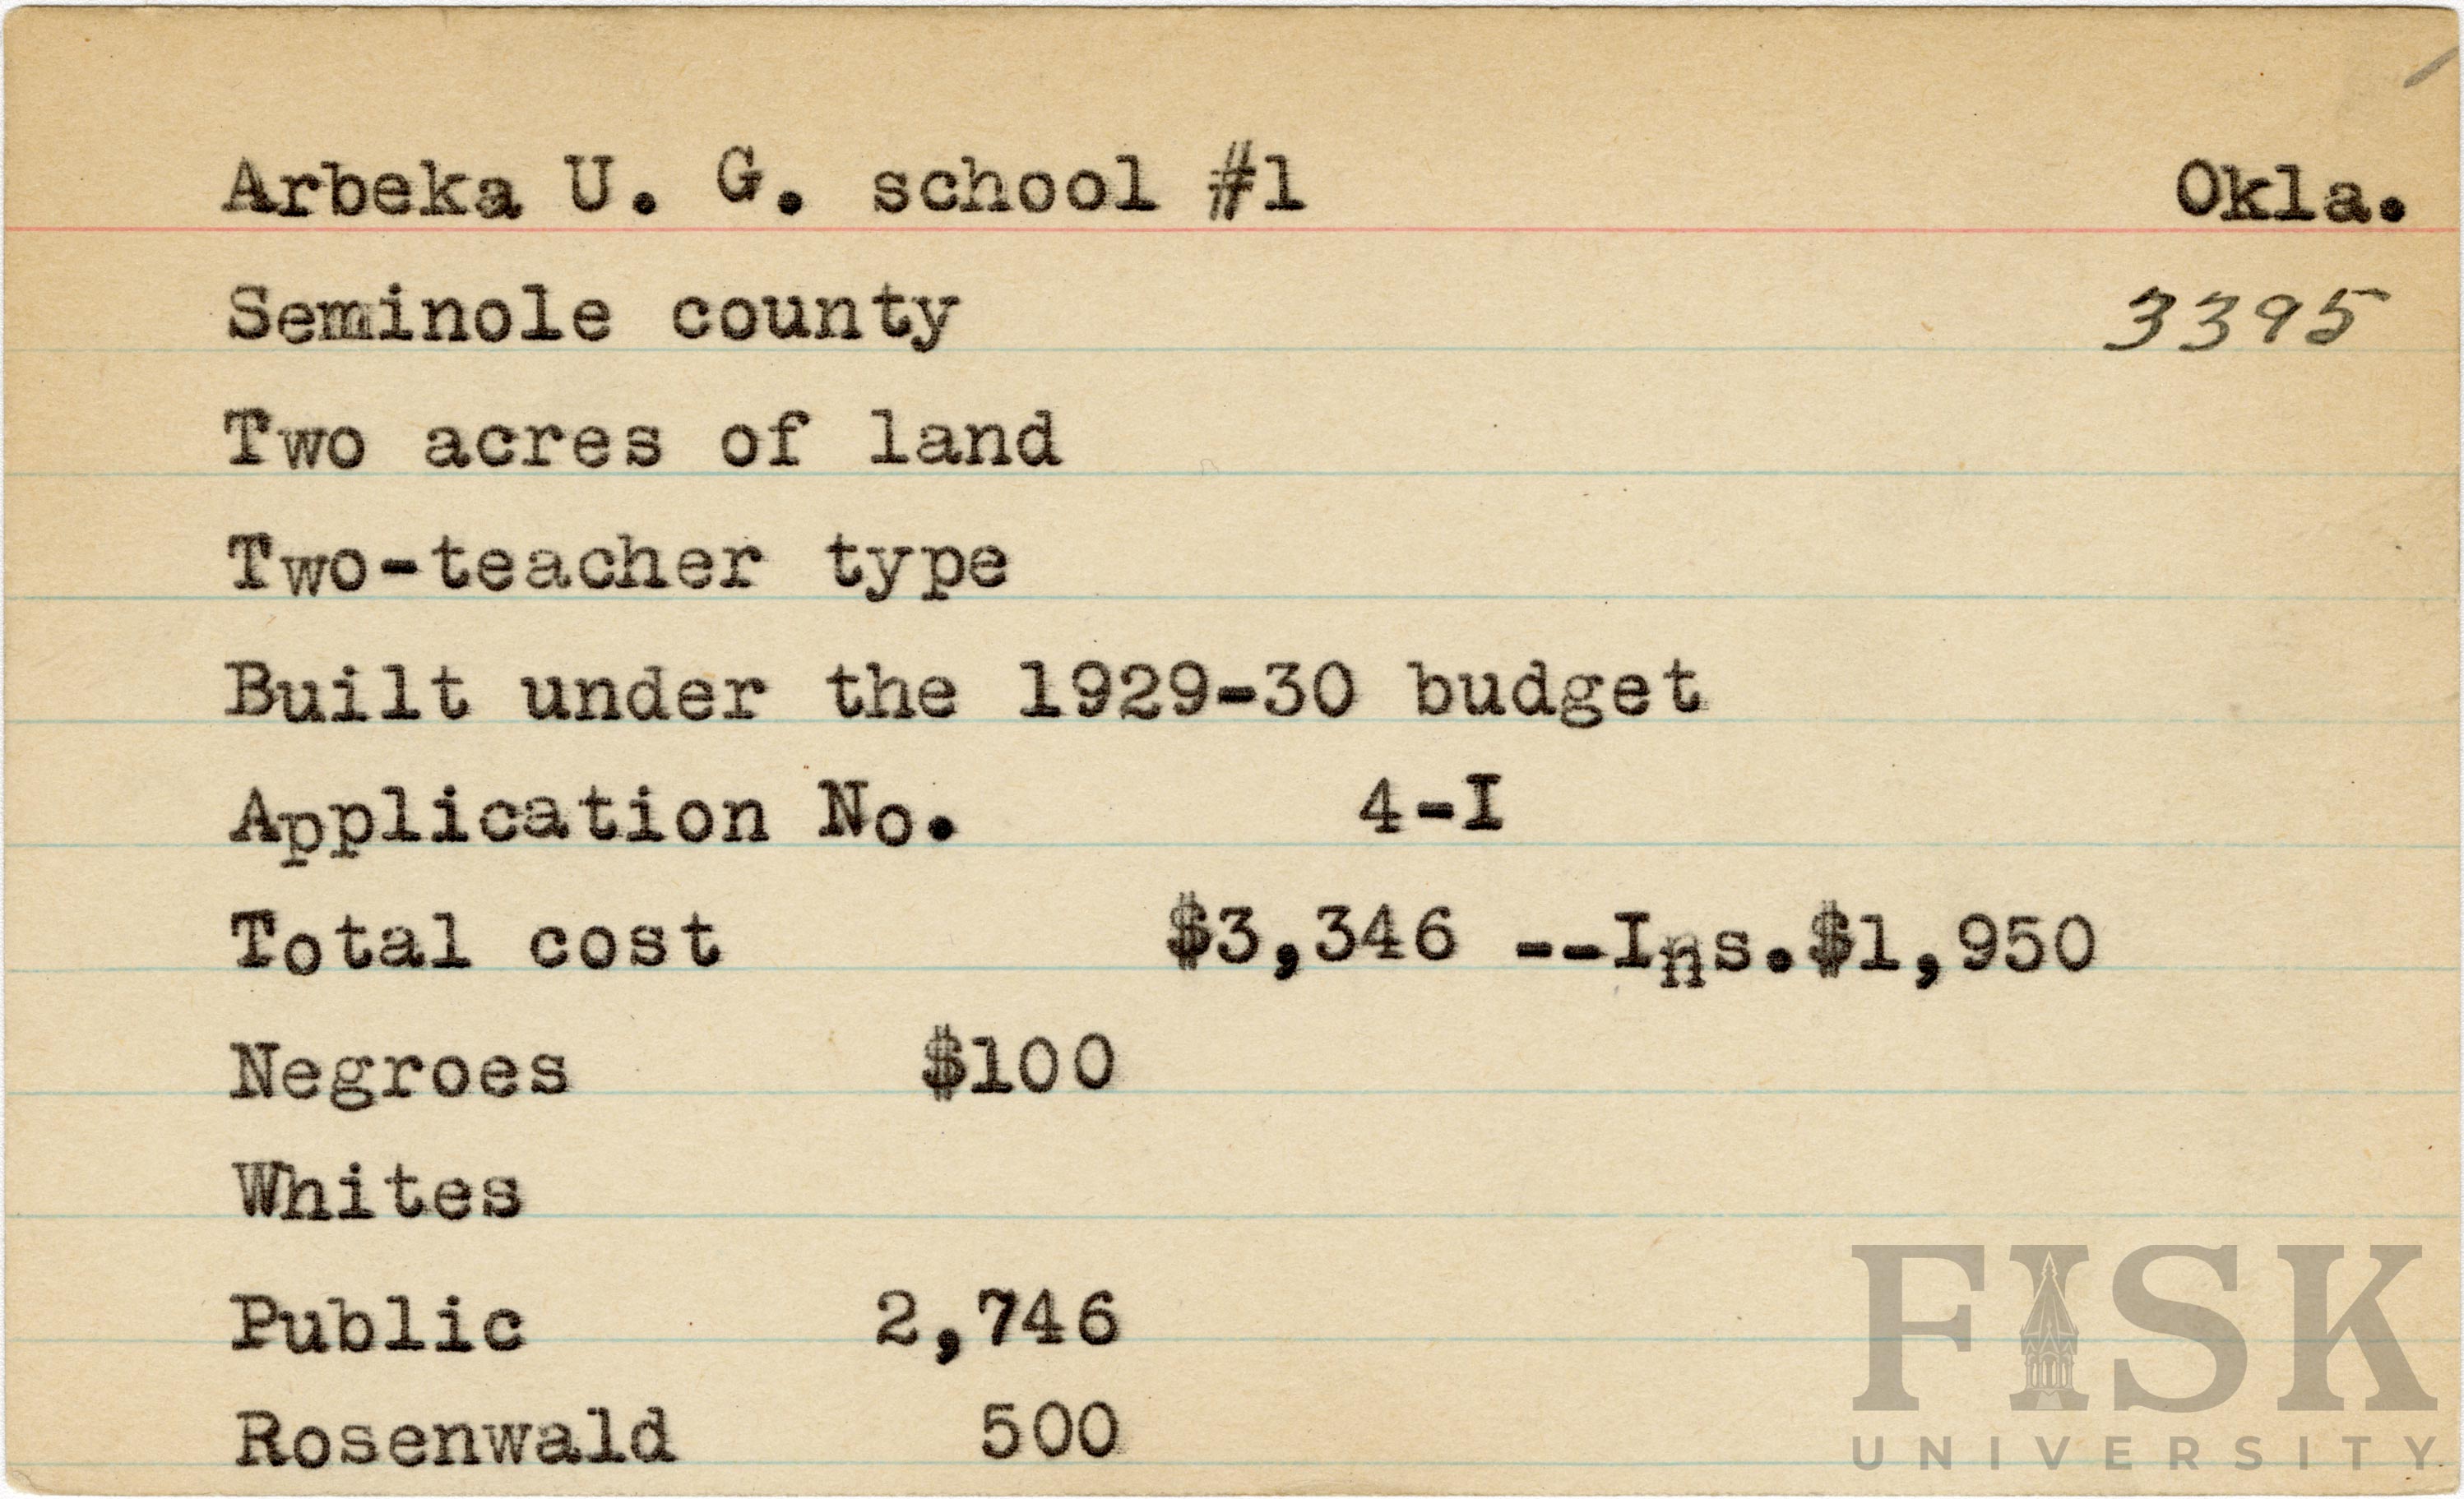 Arbeka U. G. school #1 Okla.
Seminole county 3395
Two acres of land
Two-teacher type
Built under the 1929-30 budget
Application No. 4-I
Total cost $3,346 --Ins.$1,950
Negroes $100
Whites
Public 2,746
Rosenwald 500
FISK
UNIVERSITY